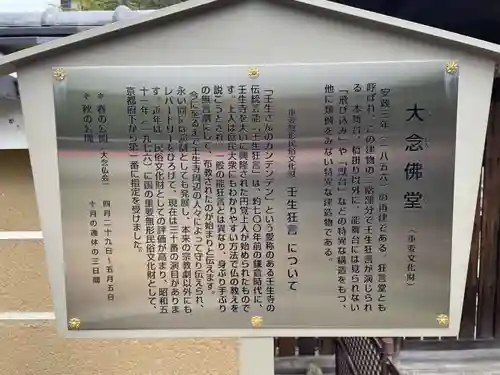 大念佛堂(重要文化財)
安政三年(一八五六)の再建である。狂言堂とも
呼ばれ、この建物の二階部分で壬生狂言が演じられ
る。本舞台、橋掛り以外に、能舞台には見られない
「飛び込み」や「獣台」などの特異な構造をもつ、
他に類例をみない特異な建造物である。
重要無形民俗文化財 壬生狂言 について
「壬生さんのカンデンデン」という愛称のある壬生寺の
伝統芸能「壬生狂言」は、約七〇〇年前の鎌倉時代に、
壬生寺を大いに興隆された円覚上人が始められたもので
す。上人は庶民大衆にもわかりやすい方法で仏の教えを
説こうとされ、一般の能狂言とは異なり、身ぶり手ぶり
の無言劇にして、布教されたのが始まりと伝えます。
今に至るまで壬生寺周辺の人々によって守り伝えられ、
永い間に大衆娯楽としても発展し、本来の宗教劇以外にも
レパートリーをひろげて、現在は三十番の演目がありま
す。近年は、民俗文化財としての評価が高まり、昭和五
十一年(一九七六)に国の重要無形民俗文化財として、
京都府下から第一番に指定を受けました。
※ 春の公開(大念仏会) 四月二十九日~五月五日
※ 秋の公開 十月の連休の三日間